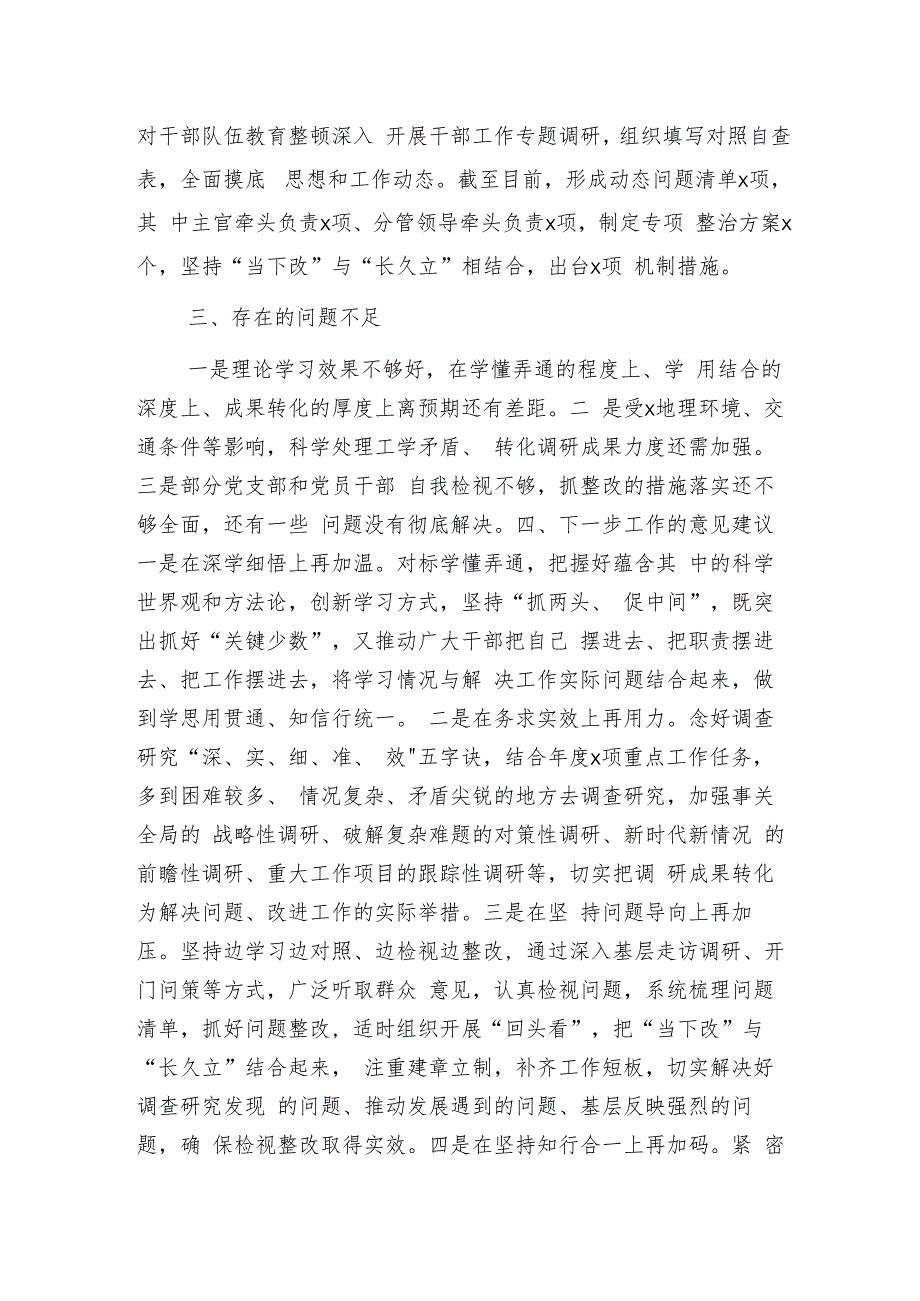 对干部队伍教育整顿深入 开展干部工作专题调研，组织填写对照自查
表，全面摸底 思想和工作动态。截至目前，形成动态问题清单x项，
其 中主官牵头负责x项、分管领导牵头负责x项，制定专项 整治方案x
个，坚持“当下改”与“长久立”相结合，出台x项 机制措施。
三、存在的问题不足
一是理论学习效果不够好，在学懂弄通的程度上、学 用结合的
深度上、成果转化的厚度上离预期还有差距。二 是受x地理环境、交
通条件等影响，科学处理工学矛盾、 转化调研成果力度还需加强。
三是部分党支部和党员干部 自我检视不够，抓整改的措施落实还不
够全面，还有一些 问题没有彻底解决。四、下一步工作的意见建议
一是在深学细悟上再加温。对标学懂弄通，把握好蕴含其 中的科学
世界观和方法论，创新学习方式，坚持“抓两头、 促中间”，既突
出抓好“关键少数”，又推动广大干部把自己 摆进去、把职责摆进
去、把工作摆进去，将学习情况与解 决工作实际问题结合起来，做
到学思用贯通、知信行统一。 二是在务求实效上再用力。念好调查
研究“深、实、细、准、 效"五字诀，结合年度x项重点工作任务，
多到困难较多、 情况复杂、矛盾尖锐的地方去调查研究，加强事关
全局的 战略性调研、破解复杂难题的对策性调研、新时代新情况 的
前瞻性调研、重大工作项目的跟踪性调研等，切实把调 研成果转化
为解决问题、改进工作的实际举措。三是在坚 持问题导向上再加
压。坚持边学习边对照、边检视边整改，通过深入基层走访调研、开
门问策等方式，广泛听取群众 意见，认真检视问题，系统梳理问题
清单，抓好问题整改，适时组织开展“回头看”，把“当下改”与
“长久立”结合起来， 注重建章立制，补齐工作短板，切实解决好
调查研究发现 的问题、推动发展遇到的问题、基层反映强烈的问
题，确 保检视整改取得实效。四是在坚持知行合一上再加码。紧 密